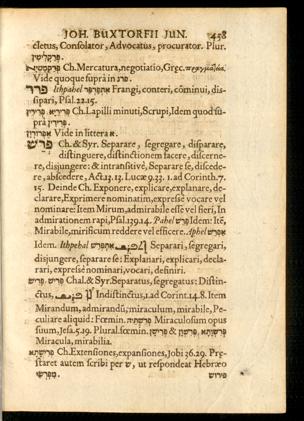 JOH. BUXTORFII JUN. 458
cletus, Consolator, Advocatus, procurator. Plur.
פְּרַקְלִיטִין.
Ch. Mercatura, negotiatio, Græc. πραγμάτεια.
Vide quoque suprà in פרג.
פרר Ithpahel אִתְפָּרְפַר Frangi, conteri, cōminui, dis-
sipari, Psal. 22.15.
פְּרִידָא, פְּרִידִין Ch. Lapilli minuti, Scrupi, Idem quod su-
prà
Vide in littera א.
פרש Ch. & Syr. Separare, segregare, disparare,
distinguere, distinctionem facere, discerne-
re, disjungere: & intransitivè, Separare se, discede-
re, abscedere, Act. 13.13. Luc. 9.33. 1. ad Corinth. 7.
15. Deinde Ch. Exponere, explicare, explanare, de-
clarare, Exprimere nominatim, expresse vocare vel
nominare: Item Mirum, admirabile esse vel fieri, In
admirationem rapi, Psal. 139.14. Pahel Idem: Itē,
Mirabile, mirificum reddere vel efficere. Aphel
Idem. Ithpehal Separari, segregari,
disjungere, separare se: Explanari, explicari, decla-
rari, expresse nominari, vocari, definiri.
Chal. & Syr. Separatus, segregatus: Distin-
ctus, Indistinctus, 1. ad Corint. 14.8. Item
Mirandum, admirandū, miraculum, mirabile, Pe-
culiare aliquid: Fœmin. Miraculosum opus
suum, Jesa. 5.19. Plural. fœmin. &
Miracula, mirabilia.
Ch. Extensiones, expansiones, Jobi 36.29. Præ-
staret autem scribi per ש, ut respondeat Hebræo
פירוש